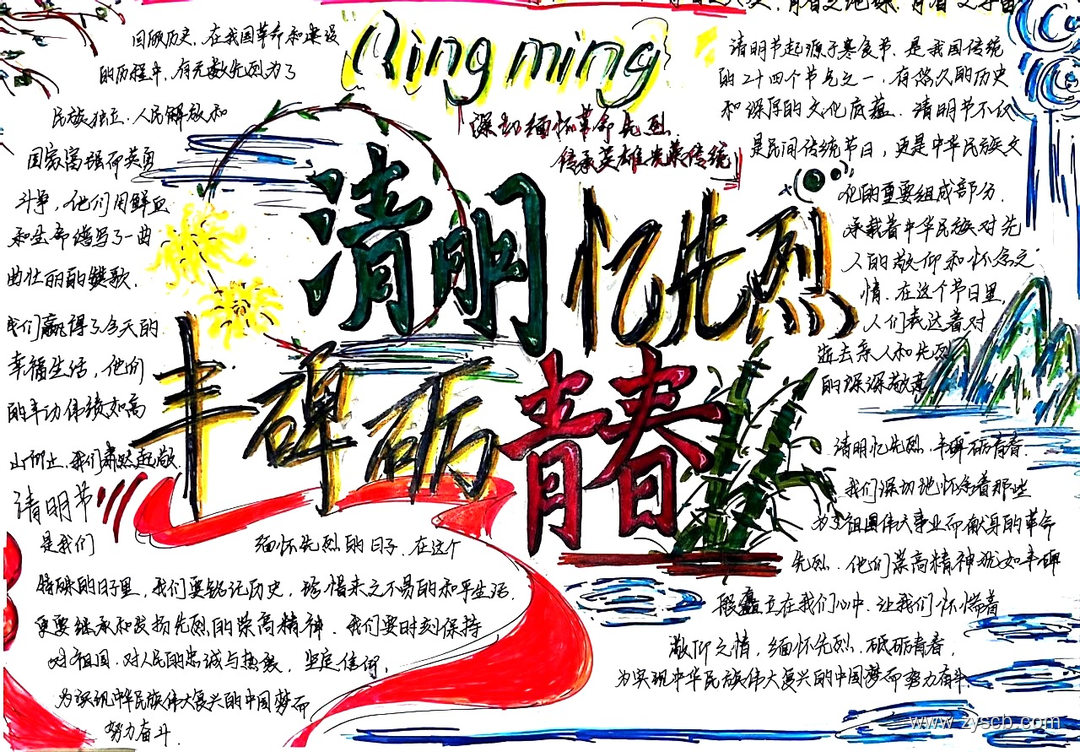 Qing ming
深切缅怀革命先烈
传承英雄光荣传统
清明忆先烈
丰碑砺青春
回顾历史,在我国革命和建设
的历程中,有无数先烈为了
民族独立、人民解放和
国家富强而英勇
斗争,他们用鲜血
和生命谱写了一曲
曲壮丽的赞歌.
我们赢得了今天的
幸福生活,他们
的丰功伟绩如高
山仰止,我们肃然起敬.
清明节
是我们
缅怀先烈的日子.在这个
特殊的日子里,我们要铭记历史,珍惜来之不易的和平生活.
更要继承和发扬先烈的崇高精神.我们要时刻保持
对祖国、对人民的忠诚与热爱,坚定信仰,
为实现中华民族伟大复兴的中国梦而
努力奋斗.
清明节起源于寒食节,是我国传统
的二十四个节气之一,有悠久的历史
和深厚的文化底蕴.清明节不仅
是民间传统节日,更是中华民族文
化的重要组成部分.
承载着中华民族对先
人的敬仰和怀念之
情.在这个节日里,
人们表达着对
逝去亲人和先烈
的深深敬意
清明忆先烈.丰碑砺青春.
我们深切地怀念着那些
为了祖国伟大事业而献身的革命
先烈.他们崇高精神犹如丰碑
般矗立在我们心中.让我们怀揣着
敬仰之情,缅怀先烈,砥砺青春,
为实现中华民族伟大复兴的中国梦而努力奋斗.
www.zyscb.com